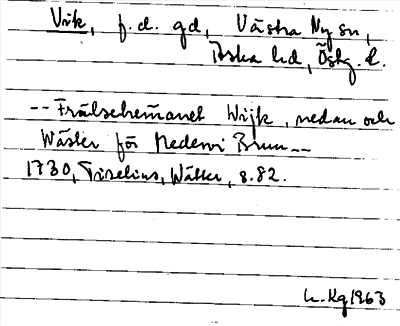 Vik, f.d. gd, Västra Ny sn,
Aska hd, Östg. l.
-- Frälsehemanet Wijk, nedan och
Wäster för Medewi Brun --
1730, Tiselius, Wätter, s. 82.
Kg 1963